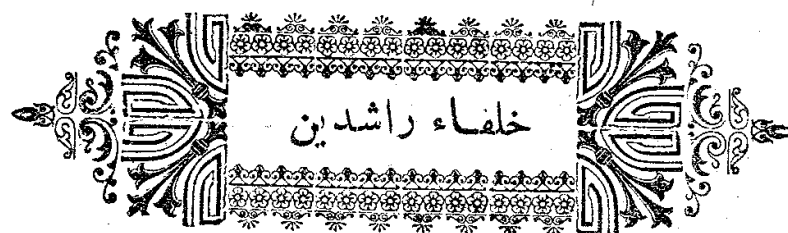 خلفاء راشدين